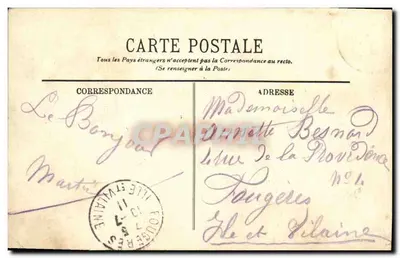 CARTE POSTALE
Tous les Pays étrangers n'acceptent pas la Correspondance au recto.
(Se renseigner à la Poste)
CORRESPONDANCE
ADRESSE
Le Bonjour
Mademoiselle
Besnard
4 rue de la Providence
No 4
Fougères
Ile et Vilaine
FOUGERES
ILLE ET VILAINE